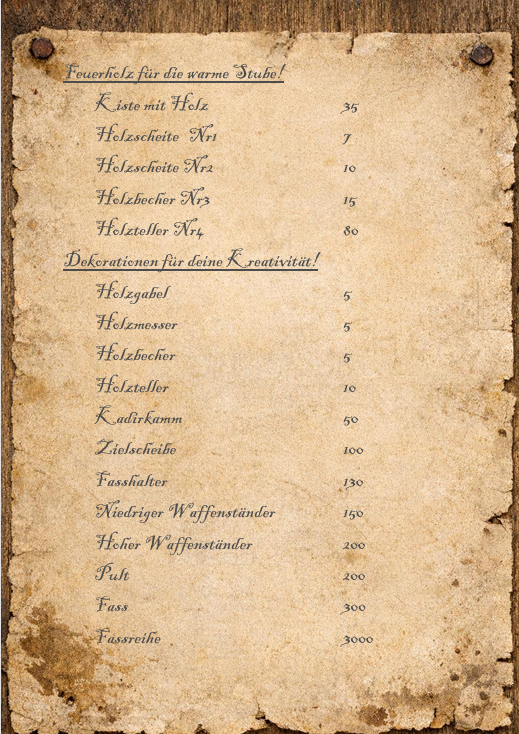 Feuerholz für die warme Stube!
Kiste mit Holz 35
Holzscheite Nr1 7
Holzscheite Nr2 10
Holzbecher Nr3 15
Holzteller Nr4 80
Dekorationen für deine Kreativität!
Holzgabel 5
Holzmesser 5
Holzbecher 5
Holzteller 10
Kadirkamm 50
Zielscheibe 100
Fasshalter 130
Niedriger Waffenständer 150
Hoher Waffenständer 200
Pult 200
Fass 300
Fassreihe 3000